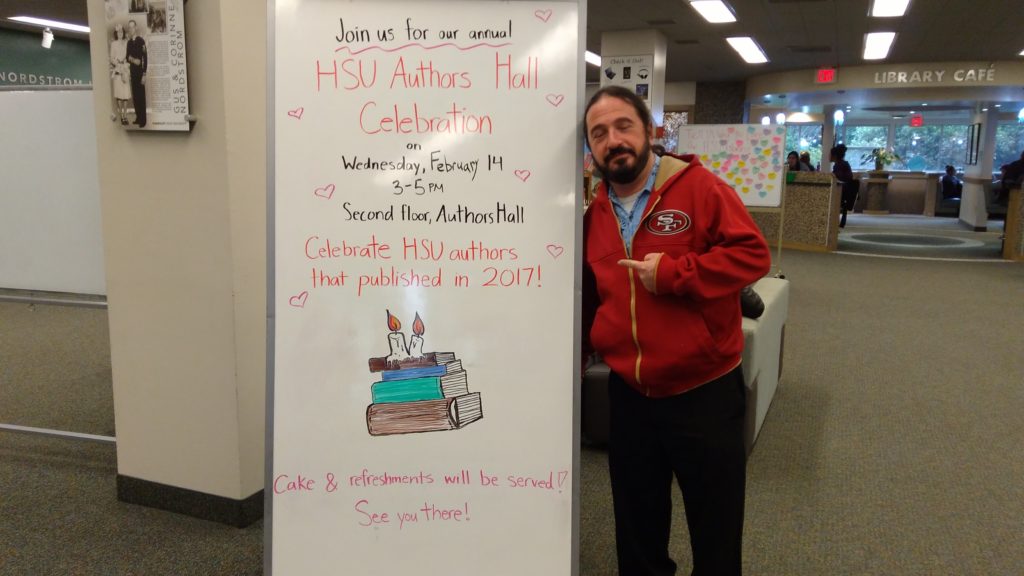 Join us for our annual
HSU Authors Hall
Celebration
on
Wednesday, February 14
3-5 PM
Second floor, Authors Hall
Celebrate HSU authors
that published in 2017!
Cake & refreshments will be served!
See you there!
GUS & CORINNE
NORDSTROM
NORDSTROM
Check it Out!
SF
EXIT
LIBRARY CAFÉ
EXIT